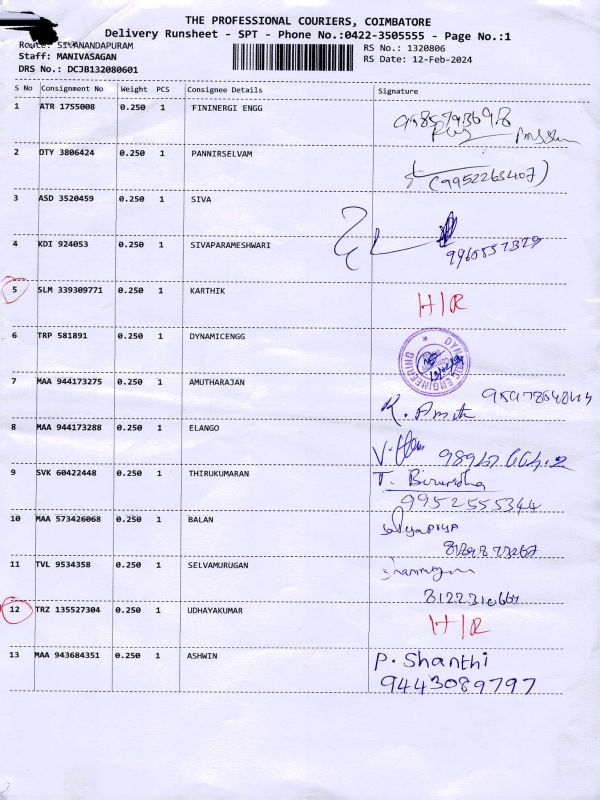 THE PROFESSIONAL COURIERS, COIMBATORE
Delivery Runsheet - SPT - Phone No.:0422-3505555 - Page No.:1
Route: SIVANANDAPURAM
RS No.: 1320806
Staff: MANIVASAGAN
RS Date: 12-Feb-2024
DRS No.: DCJB132080601
S No Consignment No Weight PCS Consignee Details Signature
1 ATR 1755008 0.250 1 FININERGI ENGG
2 DTY 3806424 0.250 1 PANNIRSELVAM
(9952263407)
3 ASD 3520459 0.250 1 SIVA
4 KDI 924053 0.250 1 SIVAPARAMESHWARI
5 SLM 339309771 0.250 1 KARTHIK H/R
6 TRP 581891 0.250 1 DYNAMICENGG
DYNAMIC ENGINEERING
7 MAA 944173275 0.250 1 AMUTHARAJAN
8 MAA 944173288 0.250 1 ELANGO
9 SVK 60422448 0.250 1 THIRUKUMARAN T.
9952555344
10 MAA 573426068 0.250 1 BALAN
11 TVL 9534358 0.250 1 SELVAMURUGAN
12 TRZ 135527304 0.250 1 UDHAYAKUMAR H/R
13 MAA 943684351 0.250 1 ASHWIN P. Shanthi
9443089797